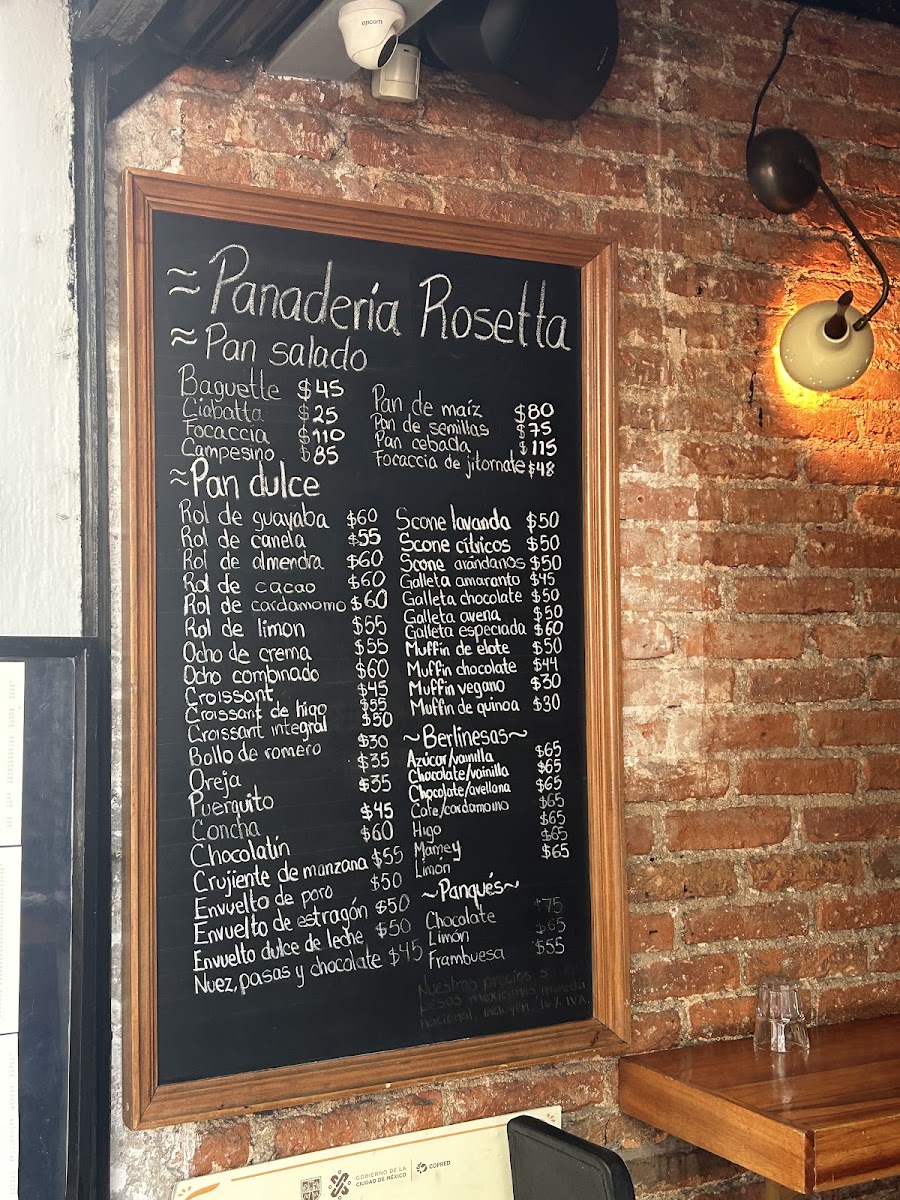 epcom
≈Panadería Rosetta
≈Pan salado
Baguette $45
Ciabatta $25
Focaccia $110
Campesino $85
Pan de maíz $80
Pan de semillas $75
Pan cebada $115
Focaccia de jitomate $48
≈Pan dulce
Rol de guayaba $60
Rol de canela $55
Rol de almendra $60
Rol de cacao $60
Rol de cardamomo $60
Rol de limon $55
Ocho de crema $55
Ocho combinado $60
Croissant $45
Croissant de higo $55
Croissant integral $50
Bollo de romero $30
Oreja $35
Puerquito $35
Concha $45
Chocolatín $60
Crujiente de manzana $55
Envuelto de poro $50
Envuelto de estragón $50
Envuelto dulce de leche $50
Nuez, pasas y chocolate $45
Scone lavanda $50
Scone cítricos $50
Scone arándanos $50
Galleta amaranto $45
Galleta chocolate $50
Galleta avena $50
Galleta especiada $60
Muffin de elote $50
Muffin chocolate $44
Muffin vegano $30
Muffin de quinoa $30
~Berlinesas~
Azúcar/vainilla $65
Chocolate/vainilla $65
Chocolate/avellana $65
Cafe/cardamomo $65
Higo $65
Mamey $65
Limón $65
~Panqués~
Chocolate $75
Limón $65
Frambuesa $55
Nuestros precios
pesos mexicanos moneda
nacional, incluyen 16% IVA.
GOBIERNO DE LA
CIUDAD DE MÉXICO
COPRED